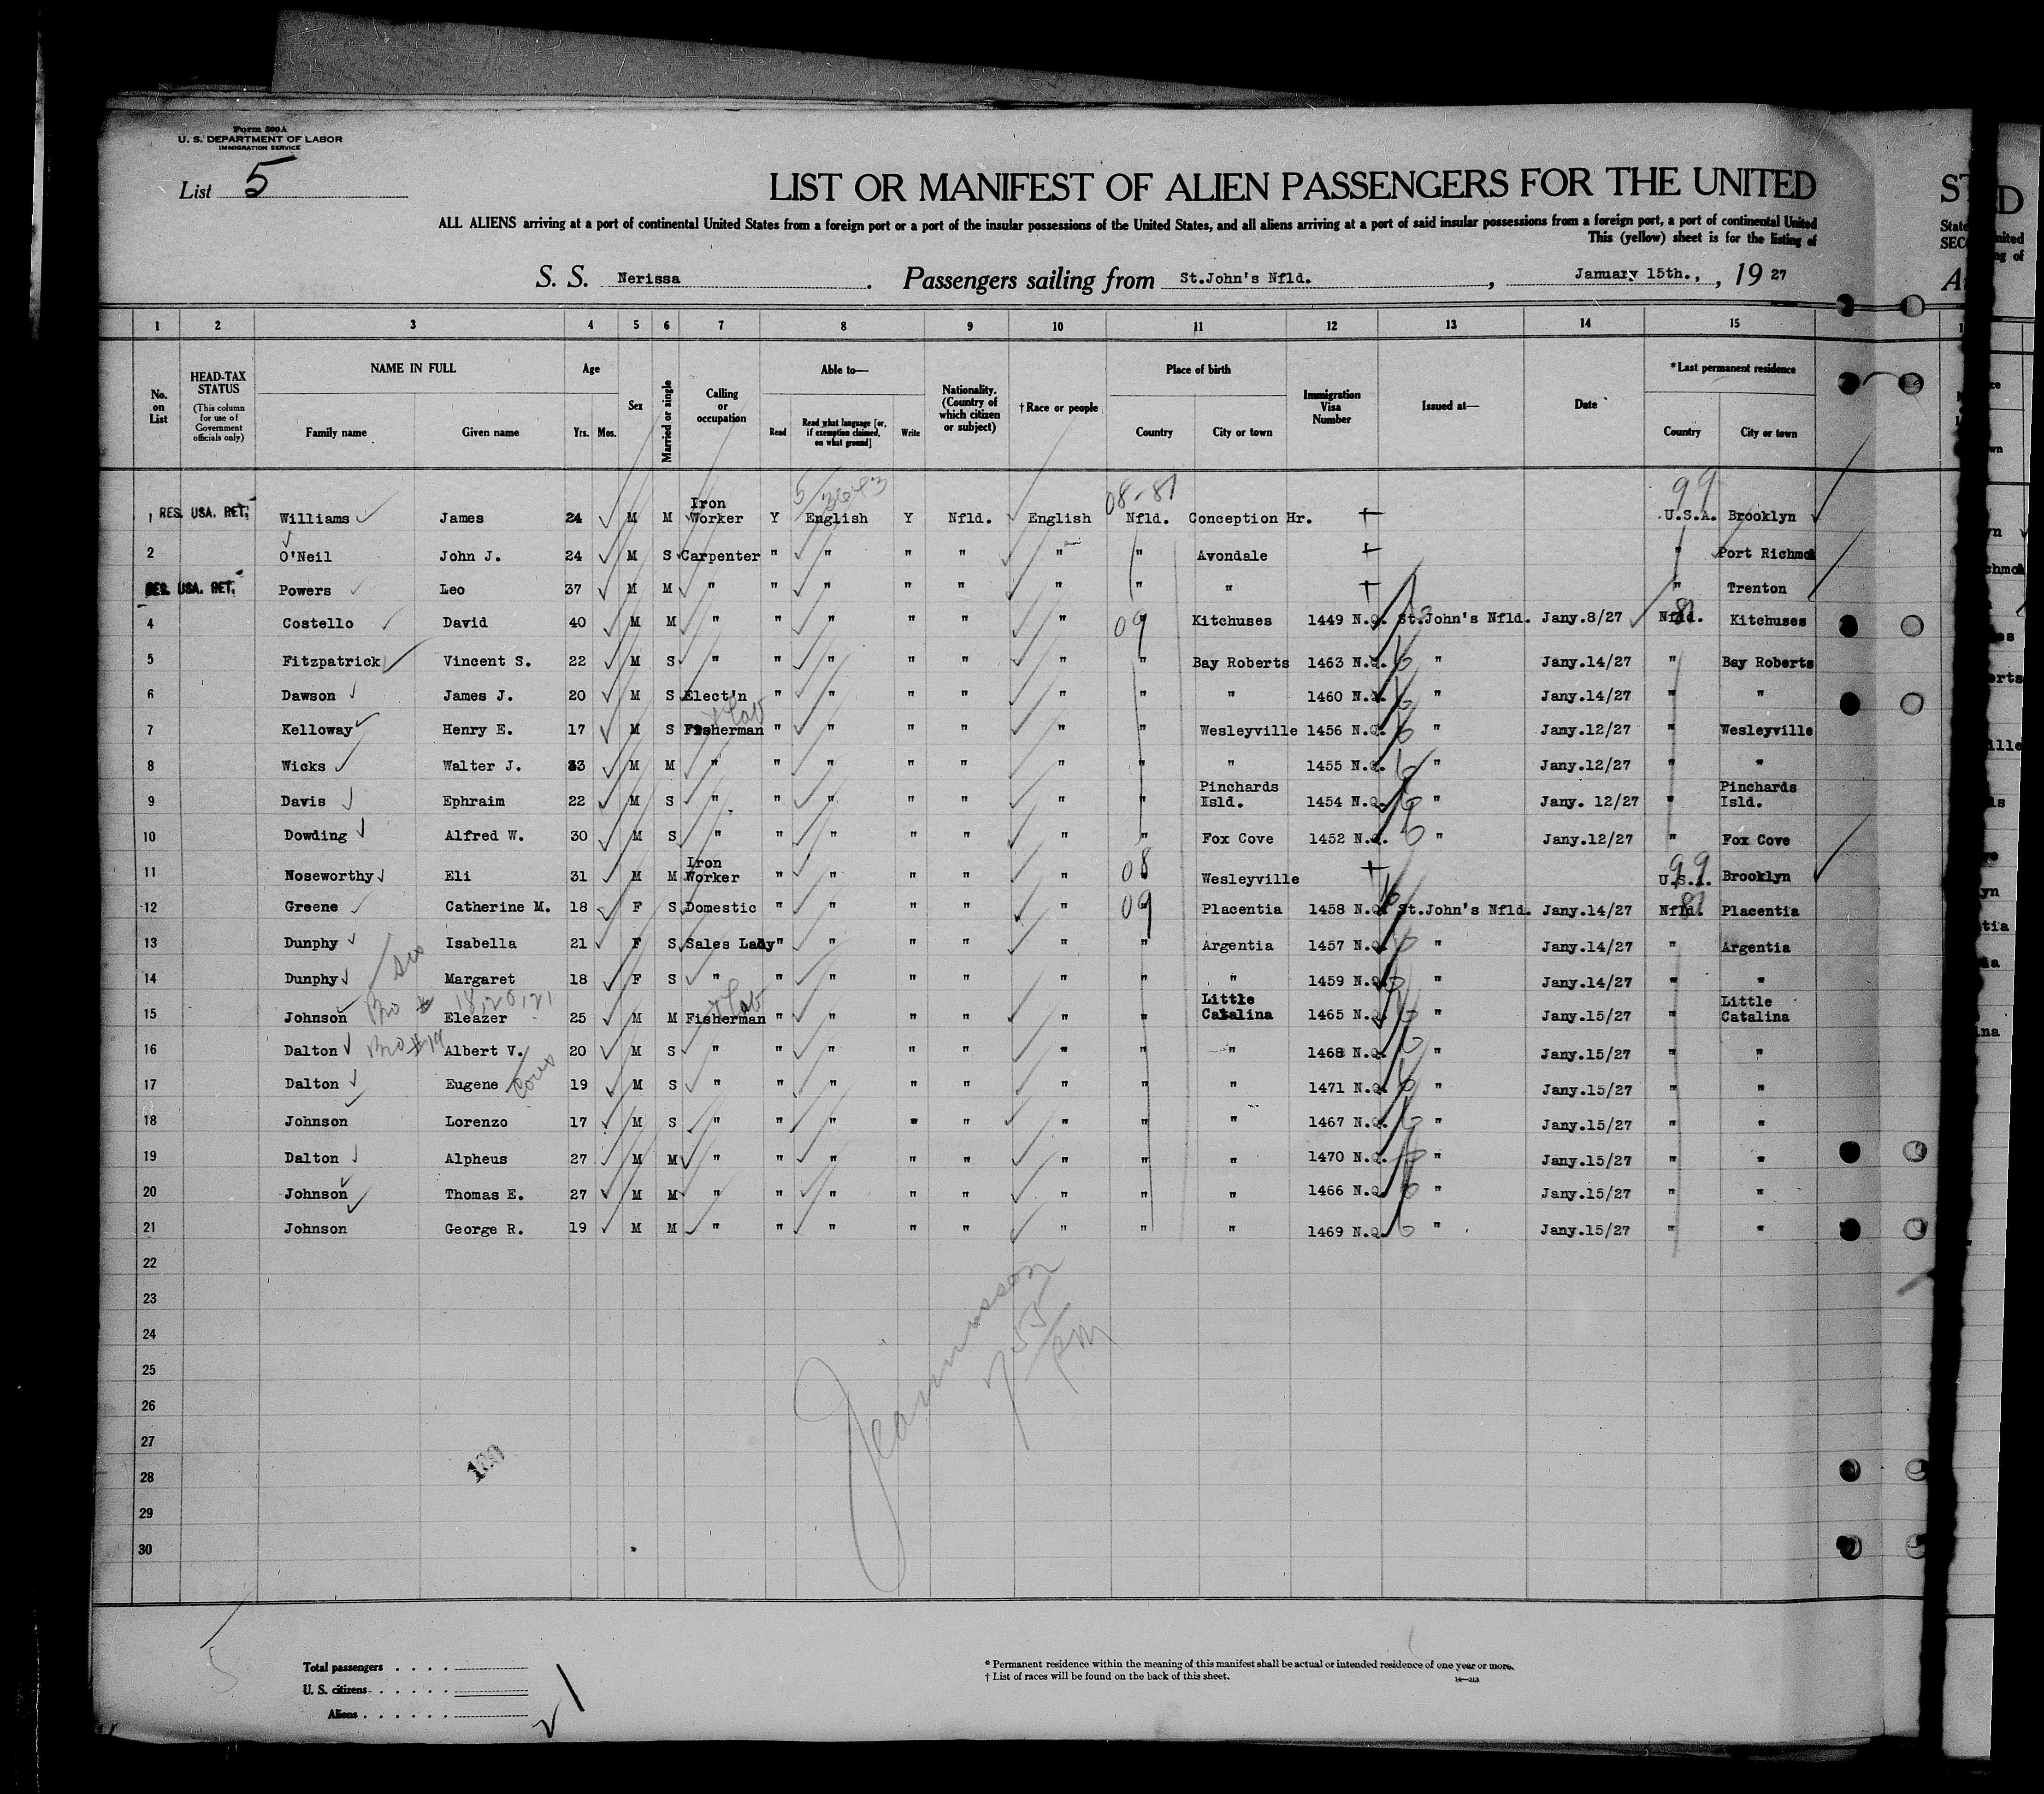 Form 500A
U. S. DEPARTMENT OF LABOR
IMMIGRATION SERVICE
List 5
LIST OR MANIFEST OF ALIEN PASSENGERS FOR THE UNITED
ALL ALIENS arriving at a port of continental United States from a foreign port or a port of the insular possessions of the United States, and all aliens arriving at a port of said insular possessions from a foreign port, a port of continental United
This (yellow) sheet is for the listing of
S. S. Nerissa . Passengers sailing from St.John's Nfld. , January 15th., , 19 27
1 2 3 4 5 6 7 8 9 10 11 12 13 14 15
No. on List
HEAD-TAX STATUS (This column for use of Government officials only)
NAME IN FULL
Family name Given name
Age
Yrs. Mos.
Sex
Married or single
Calling or occupation
Able to—
Read Read what language [or, if exemption claimed, on what ground] Write
Nationality. (Country of which citizen or subject)
† Race or people
Place of birth
Country City or town
Immigration Visa Number
Issued at—
Date
* Last permanent residence
Country City or town
5/3643 08-81 99
1 RES. USA. RET. Williams James 24 M M Iron Worker Y English Y Nfld. English Nfld. Conception Hr. † U.S.A. Brooklyn
2 O'Neil John J. 24 M S Carpenter " " " " " " Avondale † " Port Richmo
RES. USA. RET. Powers Leo 37 M M " " " " " " " " † " Trenton
4 Costello David 40 M M " " " " " " 09 Kitchuses 1449 N.Q. St.John's Nfld. Jany.8/27 Nfld. 81 Kitchuses
5 Fitzpatrick Vincent S. 22 M S " " " " " " " Bay Roberts 1463 N.Q. " Jany.14/27 " Bay Roberts
6 Dawson James J. 20 M S Elect'n " " " " " " " 1460 N.Q. " Jany.14/27 " "
7 Kelloway Henry E. 17 M S Fisherman & Lab " " " " " " Wesleyville 1456 N.Q. " Jany.12/27 " Wesleyville
8 Wicks Walter J. 33 M M " " " " " " " " 1455 N.Q. " Jany.12/27 " "
9 Davis Ephraim 22 M S " " " " " " " Pinchards Isld. 1454 N.Q. " Jany. 12/27 " Pinchards Isld.
10 Dowding Alfred W. 30 M S " " " " " " " Fox Cove 1452 N.Q. " Jany.12/27 " Fox Cove
11 Noseworthy Eli 31 M M Iron Worker " " " " " 08 Wesleyville † U.S.A. 99 Brooklyn
12 Greene Catherine M. 18 F S Domestic " " " " " 09 " Placentia 1458 N.Q. St.John's Nfld. Jany.14/27 Nfld. 81 Placentia
13 Dunphy Isabella 21 F S Sales Lady " " " " " " Argentia 1457 N.Q. " Jany.14/27 " Argentia
sis
14 Dunphy Margaret 18 F S " " " " " " " " 1459 N.Q. " Jany.14/27 " "
Bro # 18,20,21
15 Johnson Eleazer 25 M M Fisherman & Lab " " " " " " Little Catalina 1465 N.Q. " Jany.15/27 " Little Catalina
16 Dalton Bro #19 Albert V. 20 M S " " " " " " " " 1468 N.Q. " Jany.15/27 " "
17 Dalton Eugene Cous 19 M S " " " " " " " " 1471 N.Q. " Jany.15/27 " "
18 Johnson Lorenzo 17 M S " " " " " " " " 1467 N.Q. " Jany.15/27 " "
19 Dalton Alpheus 27 M M " " " " " " " " 1470 N.Q. " Jany.15/27 " "
20 Johnson Thomas E. 27 M M " " " " " " " " 1466 N.Q. " Jany.15/27 " "
21 Johnson George R. 19 M M " " " " " " " " 1469 N.Q. " Jany.15/27 " "
22
23
24
25
26
27
28
29
30
7 55 pm
Total passengers
U. S. citizens
Aliens
21
* Permanent residence within the meaning of this manifest shall be actual or intended residence of one year or more.
† List of races will be found on the back of this sheet.